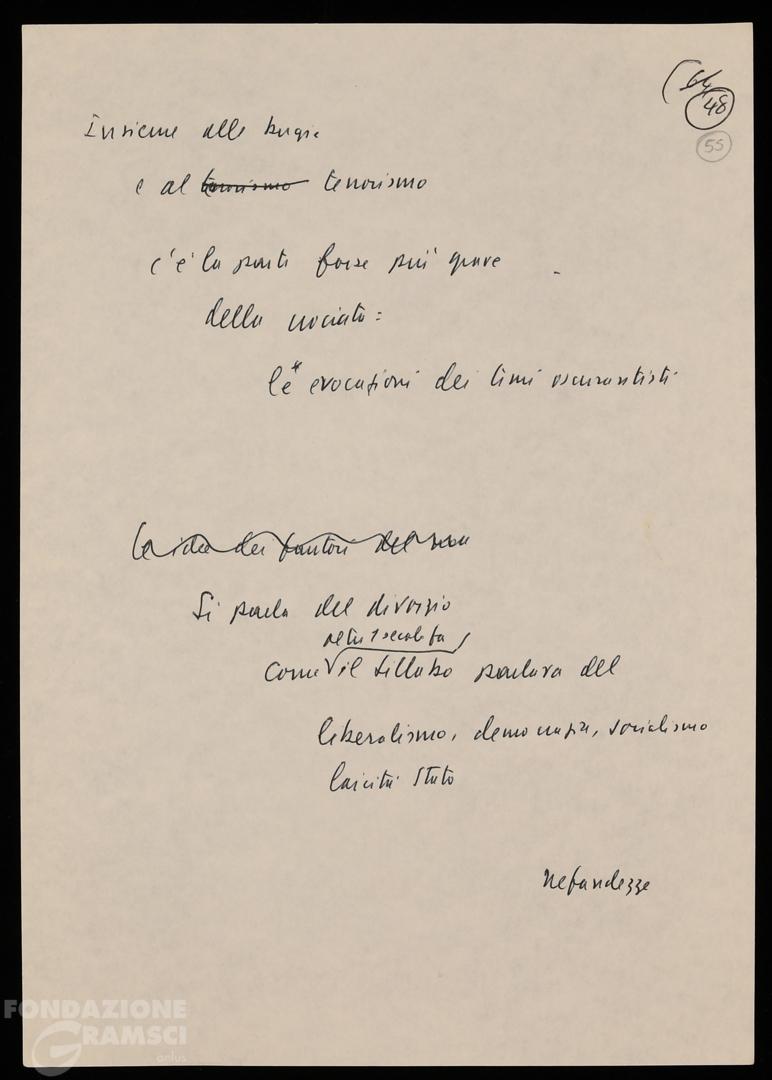 (64
48
55
Insieme alle bugie
e al terrorismo terrorismo
c'è la parte forse più grave
della crociata:
le evocazioni dei temi oscurantisti
Le idee dei fautori del
Si parla del divorzio
1 secolo fa
come il Sillabo parlava del
liberalismo, democrazia, socialismo
laicità Stato
Nefandezze
FONDAZIONE
GRAMSCI
onlus